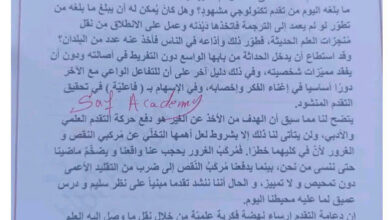 ما بلغه اليوم من تقدم تكنولوجي مشهود؟ وهل كان يُمكن له أن يبلغ ما بلغه من
تطوّر لو لم يعمد إلى الترجمة فاتخذها ديْدنه وعمل على الانطلاق من نقل
مُنجزات العلم الحديثة، فطوّر ذلك وأذاعه في الناس فأخذ عنه عدد من البلدان؟
وقد استطاع أن يدخل الحداثة من بابها الواسع دون التفريط في أصالته ودون أن
يفقد مميّزات شخصيته، وفي ذلك دليل آخر على أن للتفاعل الواعي مع الآخر
دورًا أساسيا في إغناء الفكر وإخصابه، وفي الإسهام بـ (فاعليّة) في تحقيق
التقدم المنشود.
Saf Academy
يتضح لنا مما سبق أن الهدف من الأخذ عن الغير هو دفع حركة التقدم العلمي
والأدبي، ولن يتأتى لنا ذلك إلا بشروط لعل أهمها التخلّي عن مُركبي النقص و
الغرور لأن كليهما خطر! فمُركّب الغرور يحجب عنا واقعنا و يضخّمُ ماضيَنا
حتى ننسى من نحن، بينما يدفعنا مُركّبُ النّقص إلى ضرب من التقليد الأعمى
دون تمحيص و لا تمييز، و الحال أننا ننشد تقدما مبنيّا على نظر سليم و درس
عميق لما عليه محيطنا اليوم.
إن دعامة التقدم إرساء نهضة فكرية علميّة من خلال نقل ما وصل إليه العلم